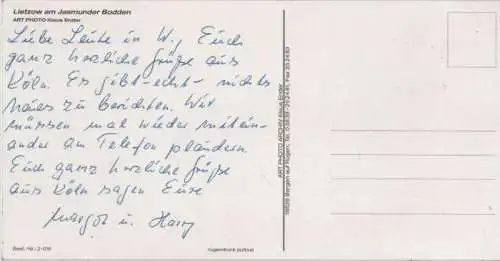 Lietzow am Jasmunder Bodden
ART PHOTO Klaus Ender
Liebe Leute in W., Euch
ganz herzliche Grüße aus
Köln. Es gibt - echt - nichts
neues zu berichten. Wir
müssen mal wieder mitein-
ander am Telefon plaudern.
Euch ganz herzliche Grüße
aus Köln sagen Eure
Margot u. Harry
Best.-Nr.: 2-016
rügendruck putbus
ART PHOTO ARCHIV Klaus Ender
18528 Bergen auf Rügen, Tel. 0 38 38 -